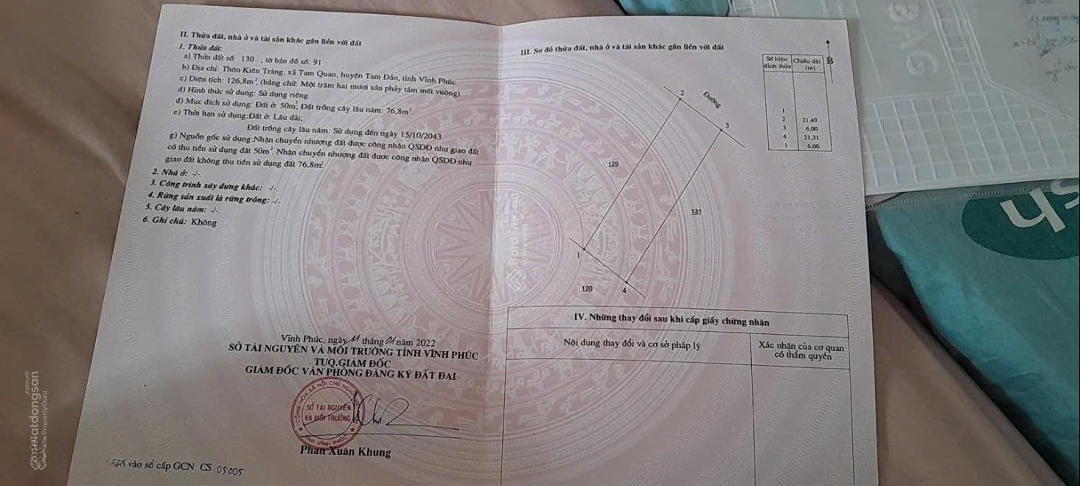 II. Thửa đất, nhà ở và tài sản khác gắn liền với đất
1. Thửa đất:
a) Thửa đất số: 130 , tờ bản đồ số: 91
b) Địa chỉ: Thôn Kiên Tràng, xã Tam Quan, huyện Tam Đảo, tỉnh Vĩnh Phúc.
c) Diện tích: 126,8m², (bằng chữ: Một trăm hai mươi sáu phẩy tám mét vuông)
d) Hình thức sử dụng: Sử dụng riêng
đ) Mục đích sử dụng: Đất ở: 50m²; Đất trồng cây lâu năm: 76,8m²
e) Thời hạn sử dụng:Đất ở: Lâu dài;
Đất trồng cây lâu năm: Sử dụng đến ngày 15/10/2043
g) Nguồn gốc sử dụng:Nhận chuyển nhượng đất được công nhận QSDĐ như giao đất
có thu tiền sử dụng đất 50m². Nhận chuyển nhượng đất được công nhận QSDĐ như
giao đất không thu tiền sử dụng đất 76,8m²
2. Nhà ở: -/-
3. Công trình xây dựng khác: -/-
4. Rừng sản xuất là rừng trồng: -/-
5. Cây lâu năm: -/-
6. Ghi chú: Không
Vĩnh Phúc, ngày 11 tháng 01 năm 2022
SỞ TÀI NGUYÊN VÀ MÔI TRƯỜNG TỈNH VĨNH PHÚC
TUQ.GIÁM ĐỐC
GIÁM ĐỐC VĂN PHÒNG ĐĂNG KÝ ĐẤT ĐAI
SỞ TÀI NGUYÊN
VÀ MÔI TRƯỜNG
Phan Xuân Khung
vào sổ cấp GCN: CS 05005
III. Sơ đồ thửa đất, nhà ở và tài sản khác gắn liền với đất
Số hiệu đỉnh thửa
Chiều dài (m)
B
1
2 21.49
3 6.00
4 21.31
1 6.00
2
Đường
3
129
131
1
120
4
IV. Những thay đổi sau khi cấp giấy chứng nhận
Nội dung thay đổi và cơ sở pháp lý
Xác nhận của cơ quan
có thẩm quyền
batdongsan
.com.vn
by PropertyGuru
sh